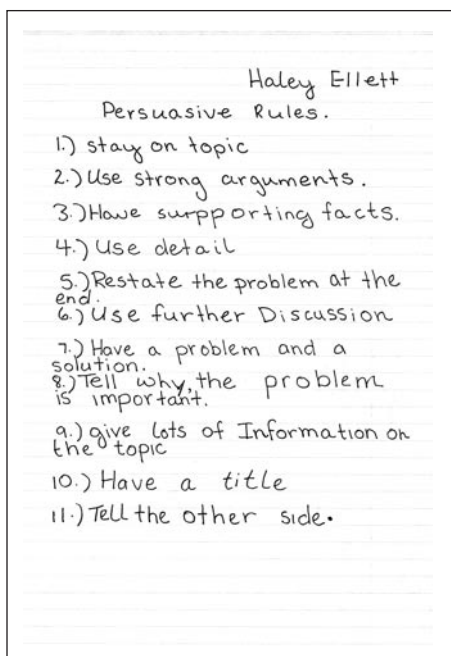 Haley Ellett
Persuasive Rules.
1.) stay on topic
2.) Use strong arguments.
3.) Have surpporting facts.
4.) Use detail
5.) Restate the problem at the
end.
6.) Use further Discussion
7.) Have a problem and a
solution.
8.) Tell why, the problem
is important.
9.) give lots of Information on
the topic
10.) Have a title
11.) Tell the other side.